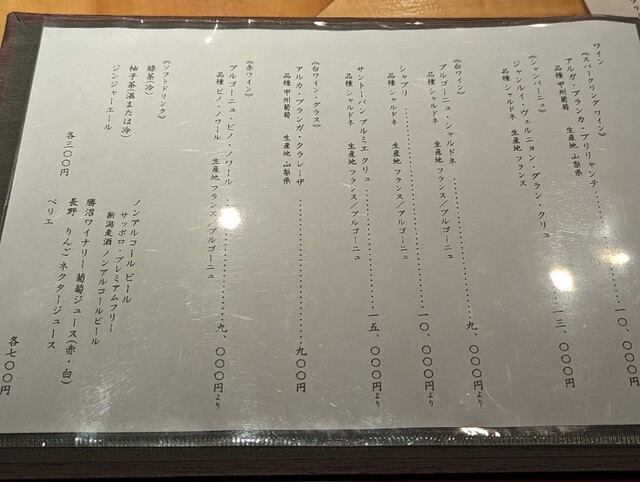 ワイン
《スパークリング ワイン》
アルガ・ブランカ・ブリリャンテ
品種 甲州葡萄 生産地 山梨県
《シャンパーニュ》
ジャン・ルイ・ヴェルニョン・グラン・クリュ 一三、〇〇〇円
品種 シャルドネ 生産地 フランス
《白ワイン》
ブルゴーニュ・シャルドネ 九、〇〇〇円より
品種 シャルドネ 生産地 フランス／ブルゴーニュ
シャブリ 一〇、〇〇〇円より
品種 シャルドネ 生産地 フランス／ブルゴーニュ
サントーバン プルミエ クリュ 一五、〇〇〇円より
品種 シャルドネ 生産地 フランス／ブルゴーニュ
《白ワイン・グラス》
アルカ・ブランガ・クラレーザ 九〇〇円
品種 甲州葡萄 生産地 山梨県
《赤ワイン》
ブルゴーニュ・ピノ・ノワール 九、〇〇〇円より
品種 ピノ・ノワール 生産地 フランス／ブルゴーニュ
《ソフトドリンク》
緑茶（冷）
柚子茶（温または冷）
ジンジャーエール
各三〇〇円
ノンアルコール ビール
サッポロ・プレミアムフリー
新潟麦酒 ノンアルコールビール
勝沼ワイナリー 葡萄ジュース（赤・白）
長野 りんごネクタージュース
ペリエ
各七〇〇円